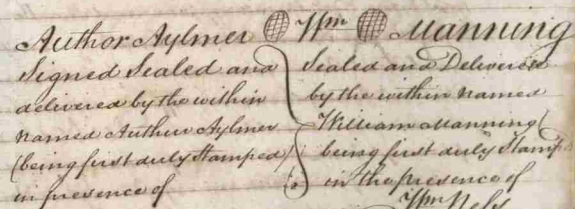 Author Aylmer Wm Manning
Signed Sealed and
delivered by the within
named Author Aylmer
(being first duly Stamped)
in presence of
Sealed and Delivered
by the within named
William Manning (
being first duly Stamp
in the presence of
Wm